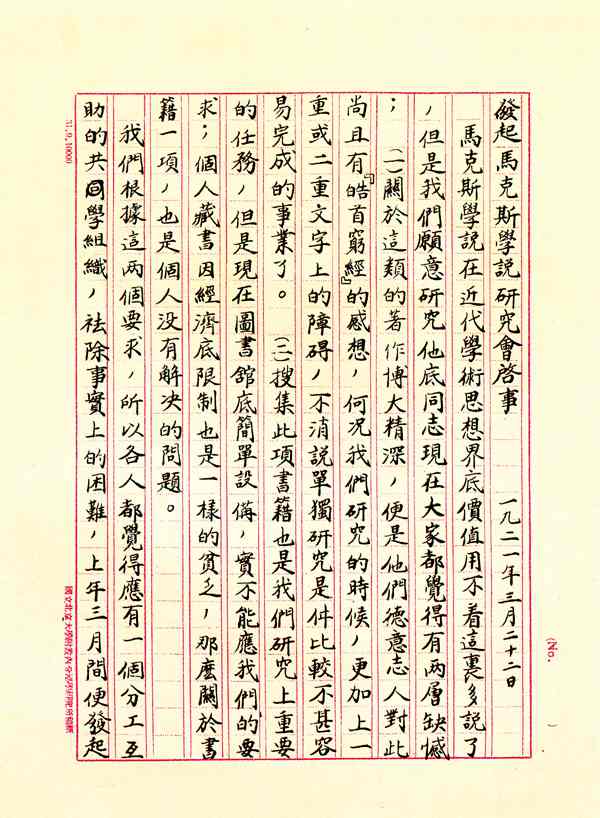 發起馬克斯學説研究會啓事　一九二一年三月二十二日
馬克斯學説在近代學術思想界底價值用不着這裏多説了
，但是我們願意研究他底同志現在大家都覺得有两層缺憾
；(一)關於這類的著作博大精深，便是他們德意志人對此
尚且有『皓首窮經』的感想，何况我們研究的時候，更加上一
重或二重文字上的障碍，不消説單獨研究是件比較不甚容
易完成的事業了。(二)搜集此項書籍也是我們研究上重要
的任務，但是現在圖書舘底簡單設備，實不能應我們的要
求；個人藏書因經濟底限制也是一樣的貧乏，那麽關於書
籍一項，也是個人没有解决的問題。
我們根據這两個要求，所以各人都覺得應有一個分工互
助的共同學組織，祛除事實上的困難，上年三月間便發起
(No.　)
31. 9. 1000)